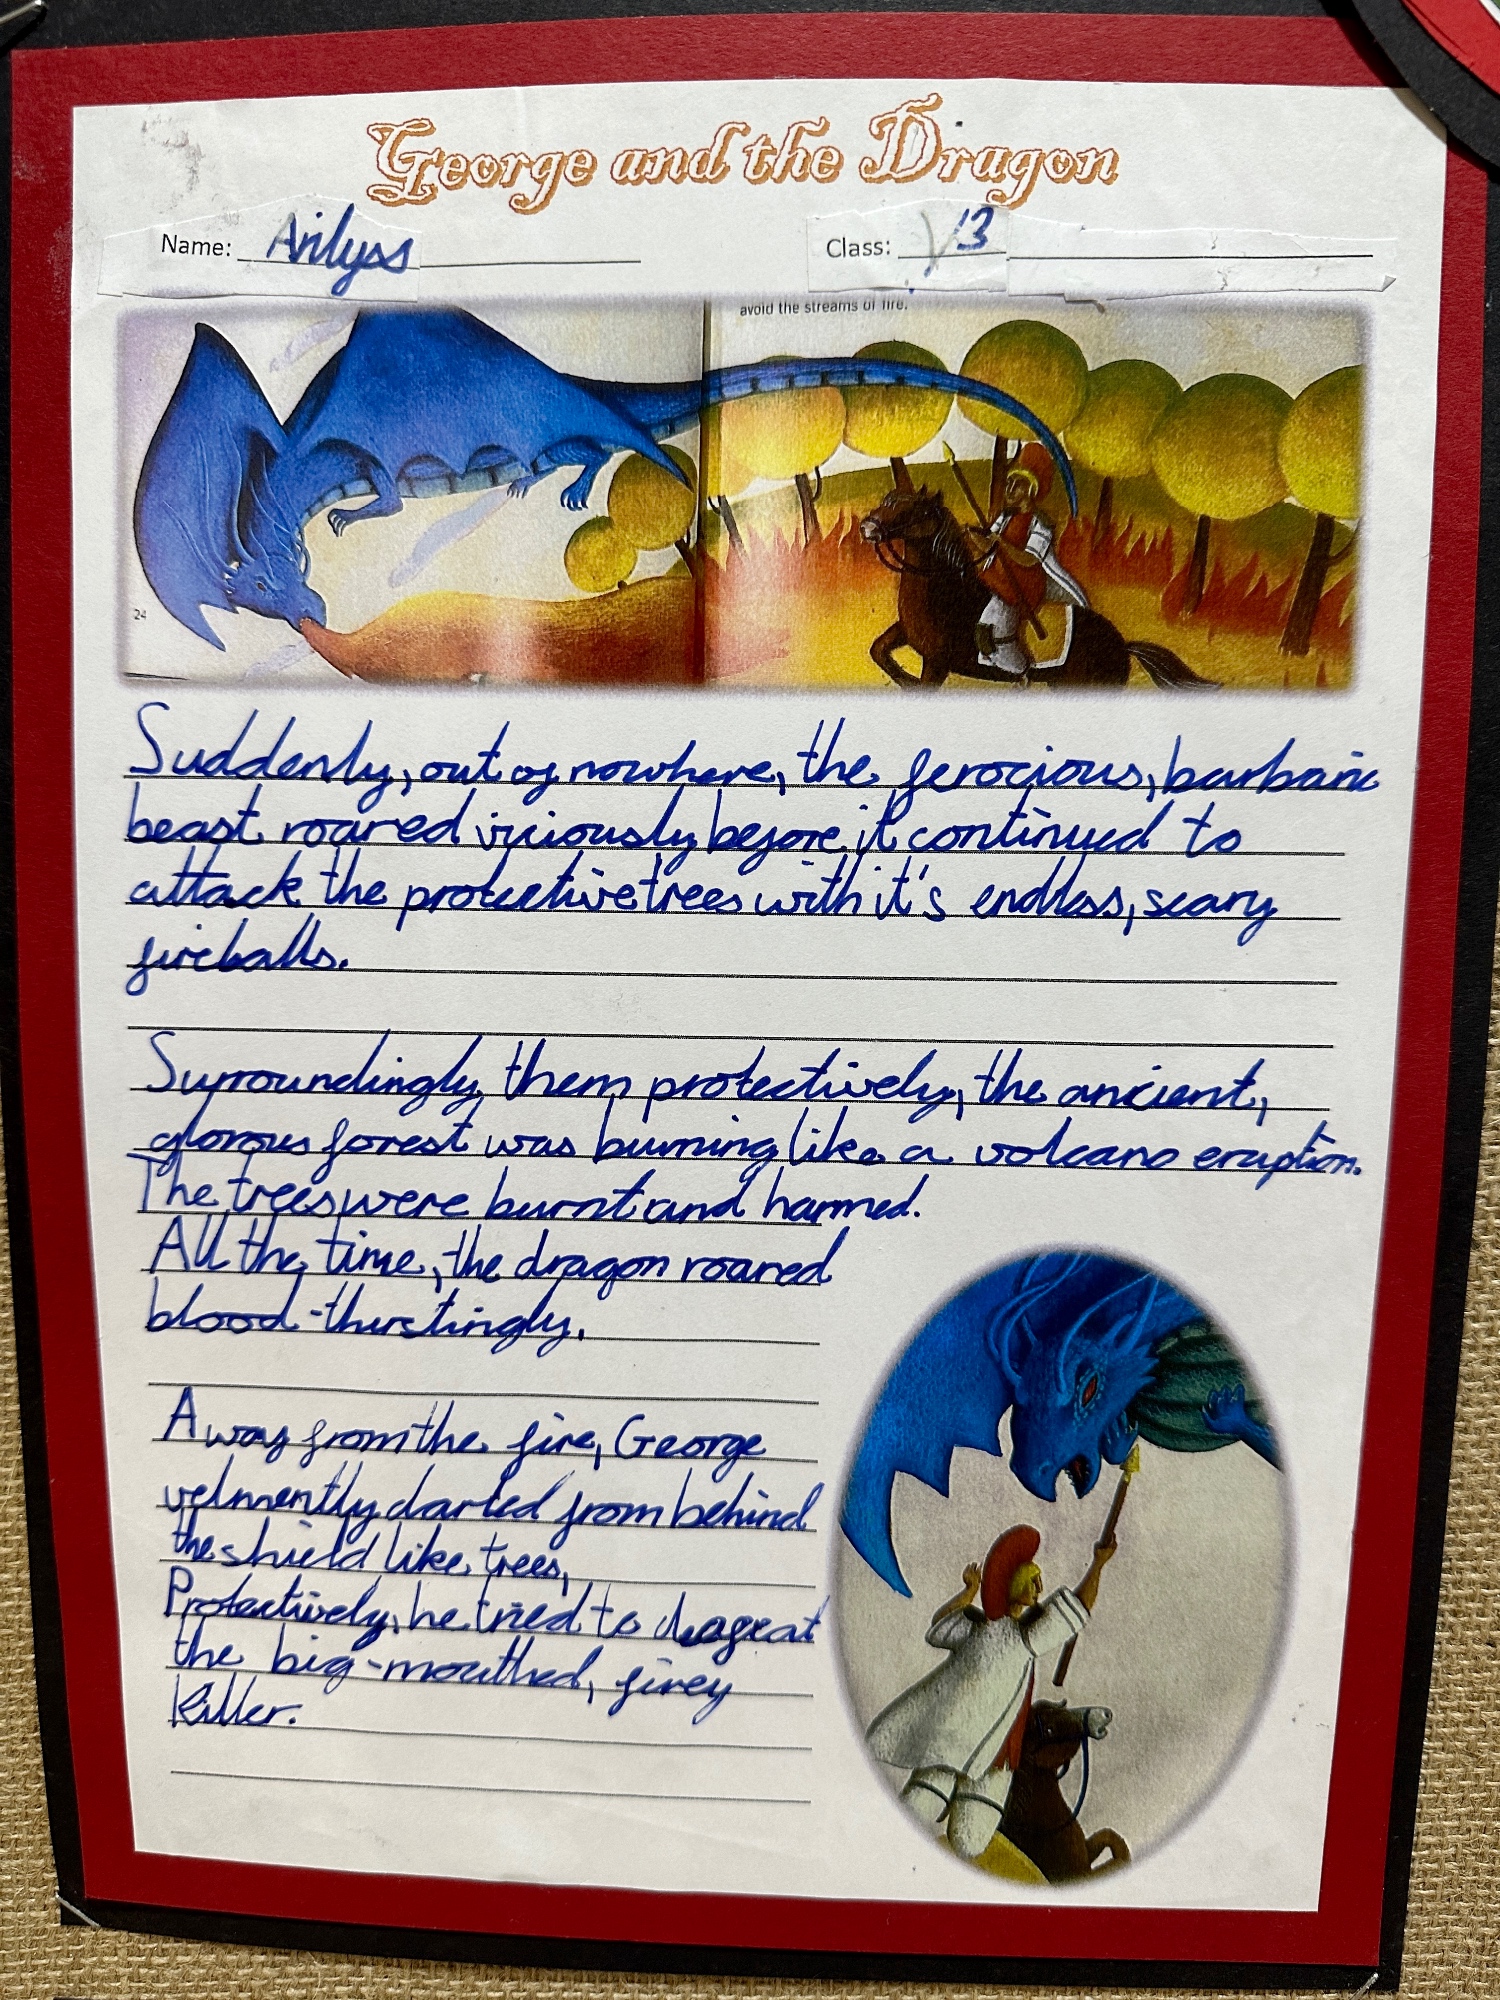 George and the Dragon
Name: Arilyss
Class: Y3
avoid the streams of fire.
24
Suddenly, out of nowhere, the ferocious, barbaric
beast roared viciously before it continued to
attack the protective trees with it's endless, scary
fireballs.
Surroundingly them protectively, the ancient,
glorous forest was burning like a volcano eruption.
The trees were burnt and harmed.
All the time, the dragon roared
blood-thirstingly.
Away from the fire, George
velmently darted from behind
the shield like trees,
Protectively, he tried to
the big-mouthed, firey
killer.